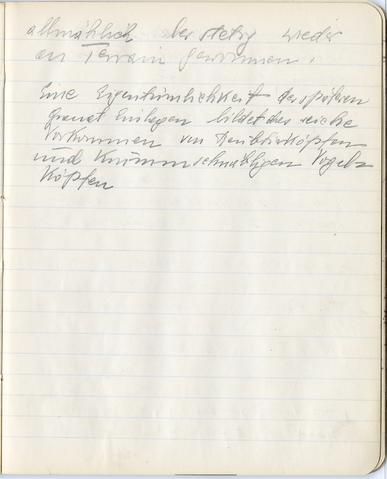 allmählich aber stetig wieder
an Terrain gewonnen.
Eine Eigentümlichkeit der späteren
Granat Einlagen bildet das reiche
Vorkommen von Raubtierköpfen
und Krummschnabligen Vogel=
Köpfen